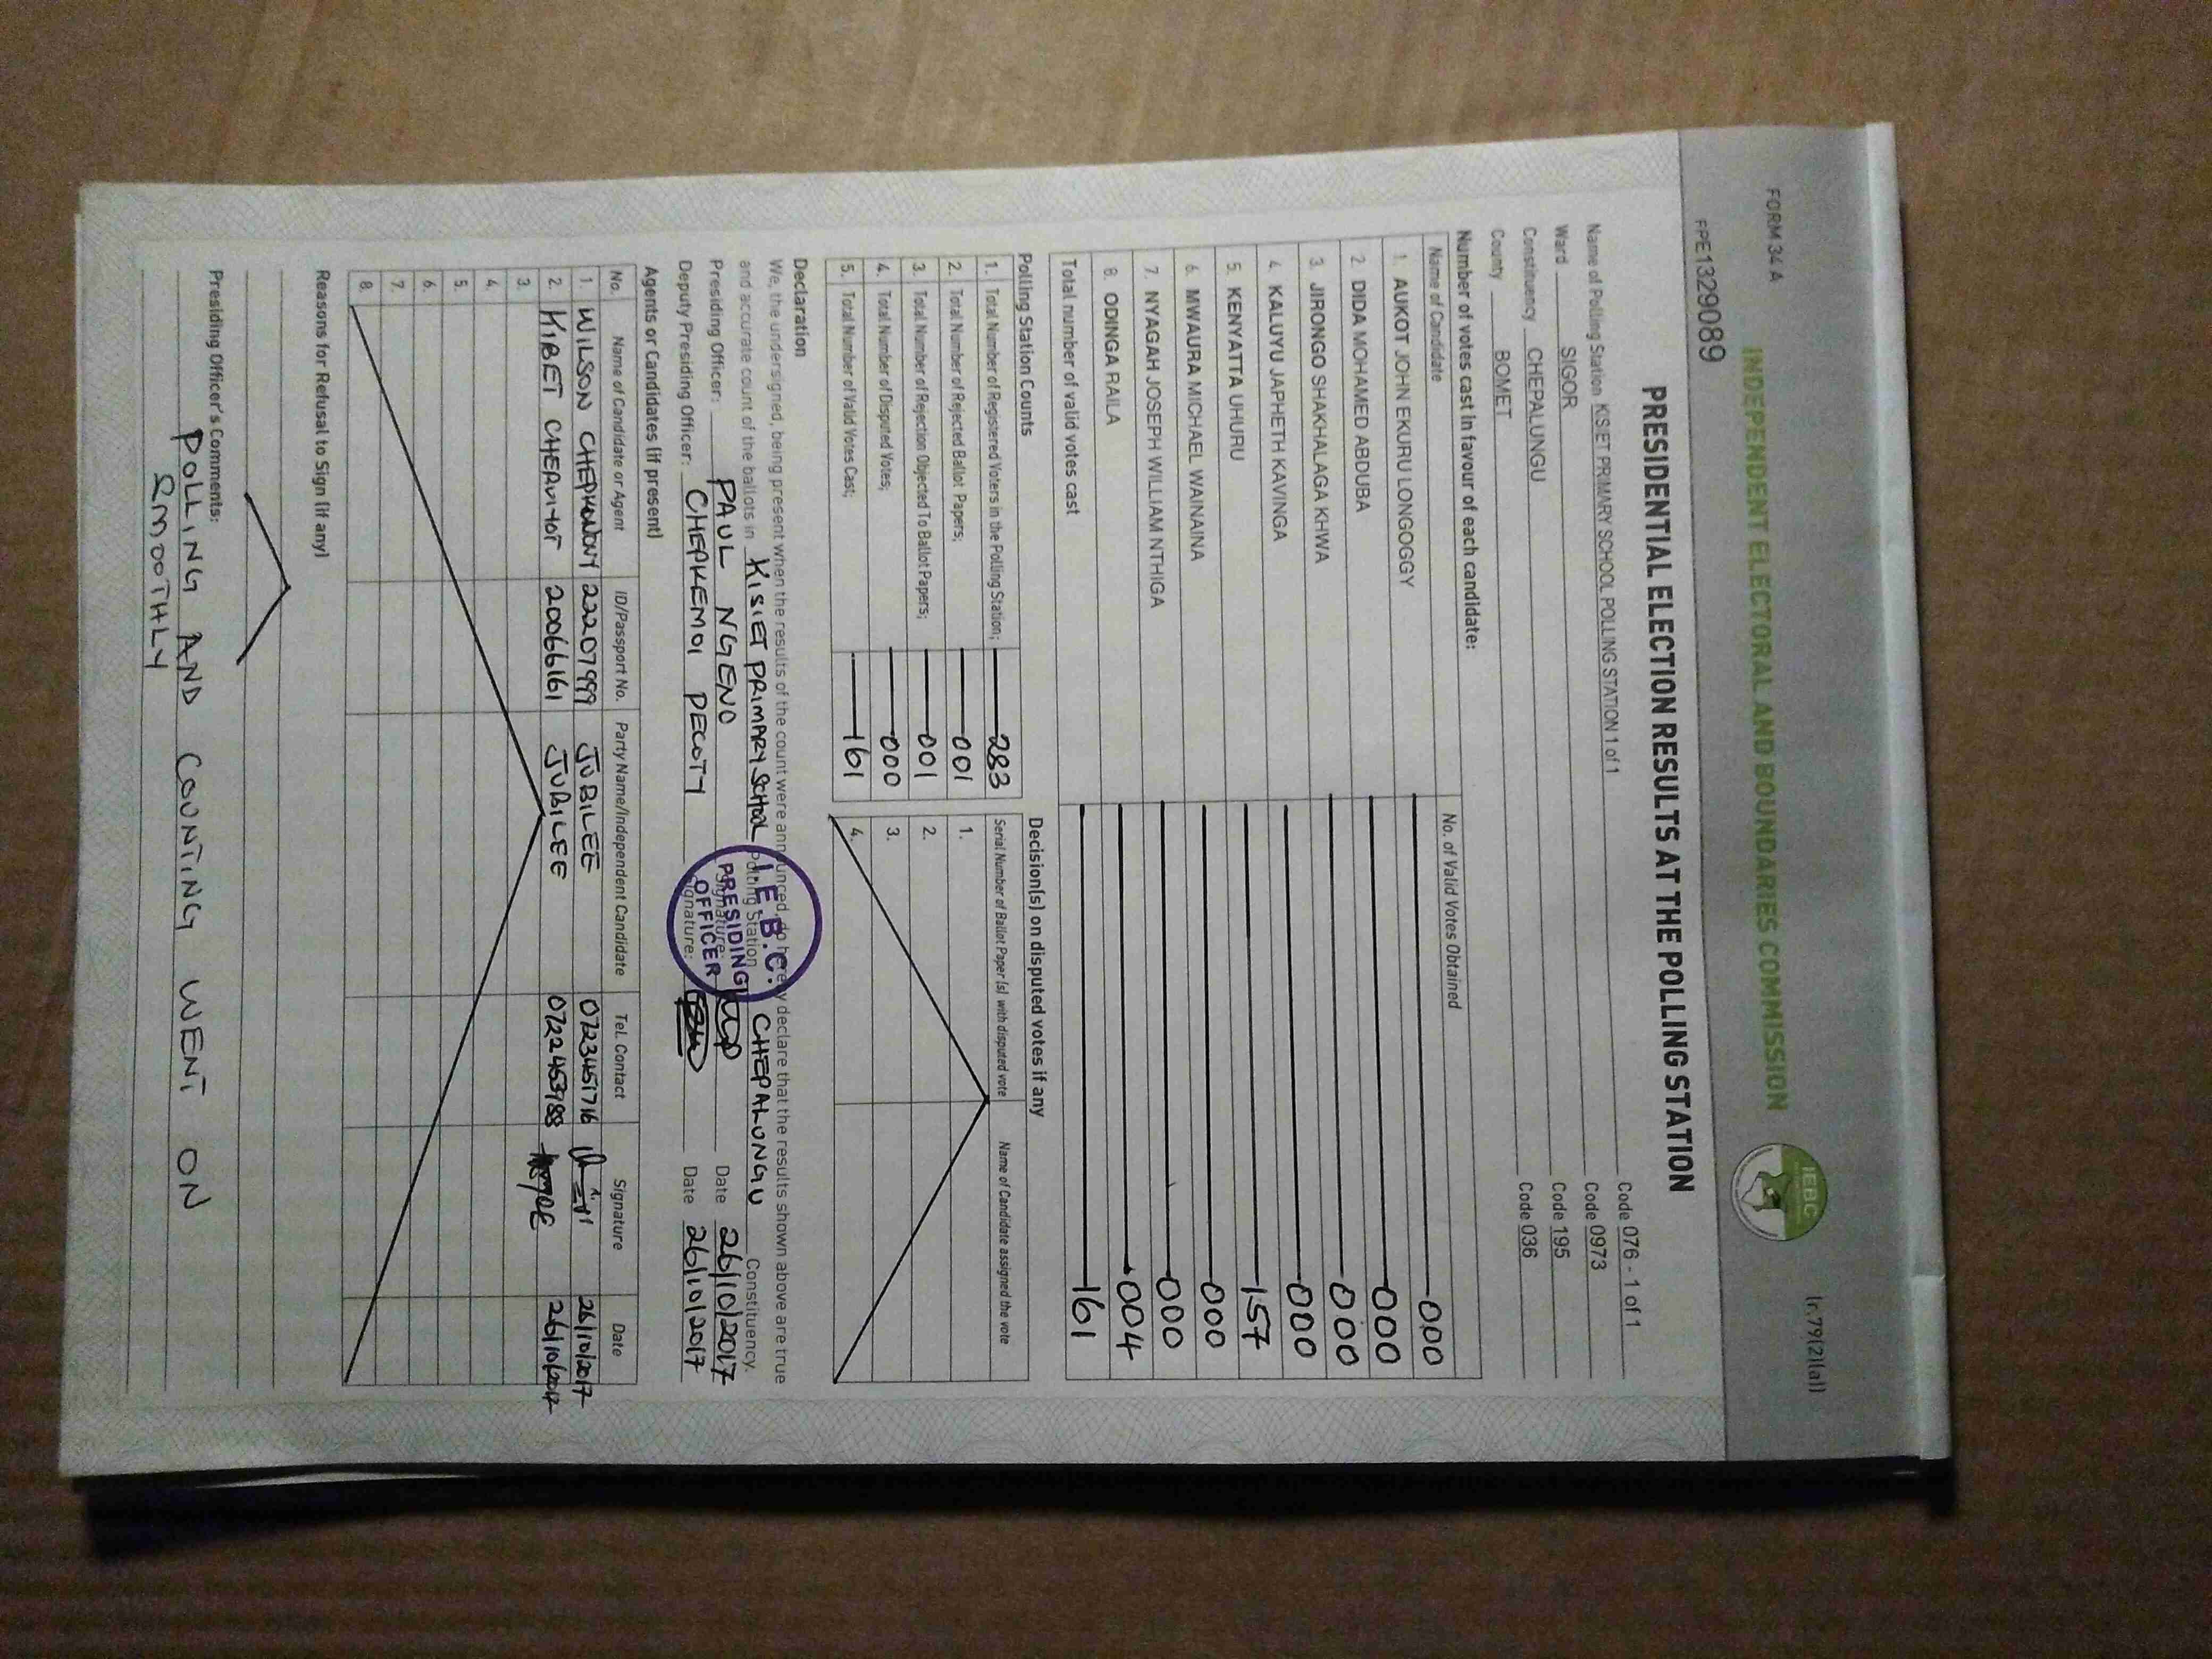 FORM 34 A
(r.79(2)(a))
INDEPENDENT ELECTORAL AND BOUNDARIES COMMISSION
IEBC
FPE1329089
PRESIDENTIAL ELECTION RESULTS AT THE POLLING STATION
Name of Polling Station KISIET PRIMARY SCHOOL POLLING STATION 1 of 1 Code 076 - 1 of 1
Ward SIGOR Code 0973
Constituency CHEPALUNGU Code 195
County BOMET Code 036
Number of votes cast in favour of each candidate:
Name of Candidate No. of Valid Votes Obtained
1. AUKOT JOHN EKURU LONGOGGY 000
2. DIDA MOHAMED ABDUBA 000
3. JIRONGO SHAKHALAGA KHWA 000
4. KALUYU JAPHETH KAVINGA 000
5. KENYATTA UHURU 157
6. MWAURA MICHAEL WAINAINA 000
7. NYAGAH JOSEPH WILLIAM NTHIGA 000
8. ODINGA RAILA 004
Total number of valid votes cast 161
Polling Station Counts
1. Total Number of Registered Voters in the Polling Station; 283
2. Total Number of Rejected Ballot Papers; 001
3. Total Number of Rejection Objected To Ballot Papers; 001
4. Total Number of Disputed Votes; 000
5. Total Number of Valid Votes Cast; 161
Decision(s) on disputed votes if any
Serial Number of Ballot Paper (s) with disputed vote Name of Candidate assigned the vote
1.
2.
3.
4.
Declaration
We, the undersigned, being present when the results of the count were announced, do hereby declare that the results shown above are true
and accurate count of the ballots in KISIET PRIMARY SCHOOL Polling Station CHEPALUNGU Constituency.
Presiding Officer: PAUL NGENO Signature: Date 26/10/2017
Deputy Presiding Officer: CHEPKEMOI PECOTY Signature: Date 26/10/2017
I.E.B.C.
PRESIDING
OFFICER
Agents or Candidates (if present)
No. Name of Candidate or Agent ID/Passport No. Party Name/Independent Candidate Tel. Contact Signature Date
1. WILSON CHEPKWONY 22207999 JUBILEE 26/10/2017
2. KIBET CHERUIYOT 20066161 JUBILEE 0722453988 26/10/2017
3.
4.
5.
6.
7.
8.
Reasons for Refusal to Sign (if any)
Presiding Officer's Comments:
POLLING AND COUNTING WENT ON
SMOOTHLY